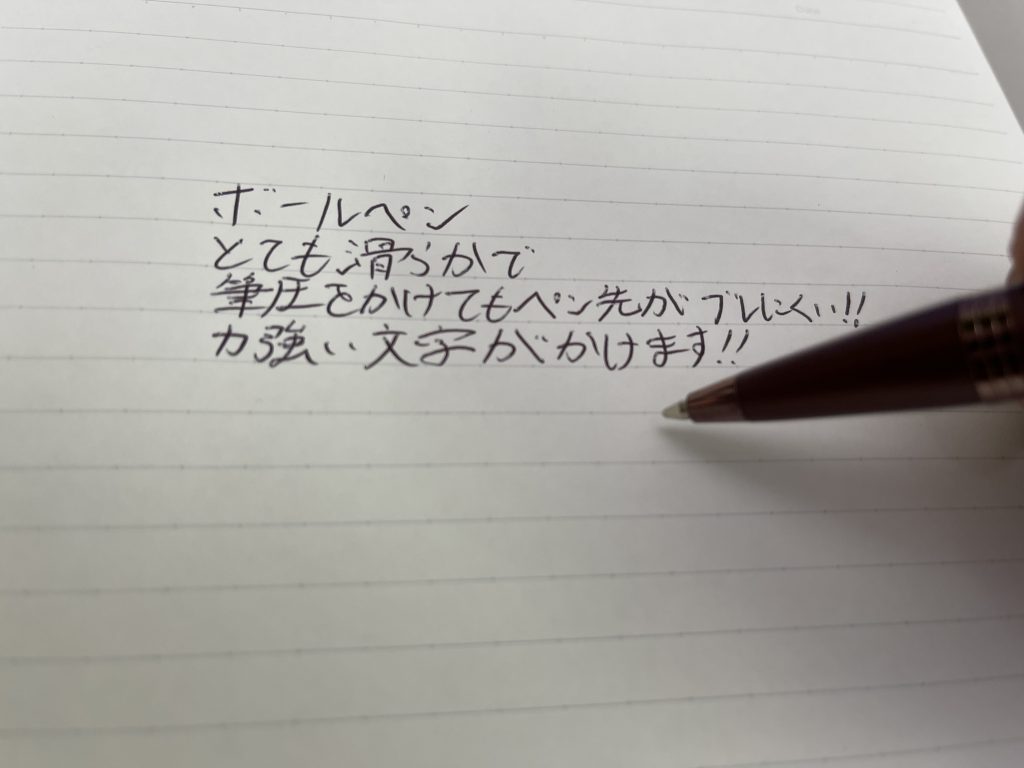 ボールペン
とても滑らかで
筆圧をかけてもペン先がブレにくい!!
力強い文字がかけます!!